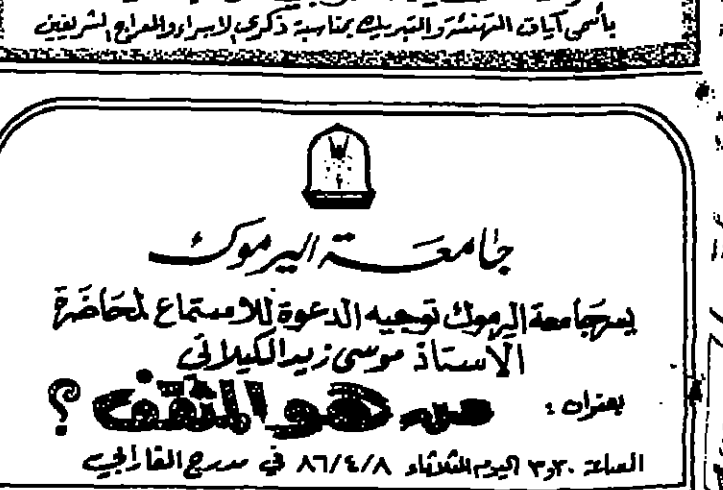 بأسمى آيات التهنئة والتبريك بمناسبة ذكرى الإسراء والمعراج الشريفين
جامعة اليرموك
يسر جامعة اليرموك توجيه الدعوة للاستماع لمحاضرة
الأستاذ موسى زيد الكيلاني
بعنوان :
من هو المثقف ؟
الساعة ٣٫٣٠ اليوم الثلاثاء ٨٦/٤/٨ في مدرج الفارابي